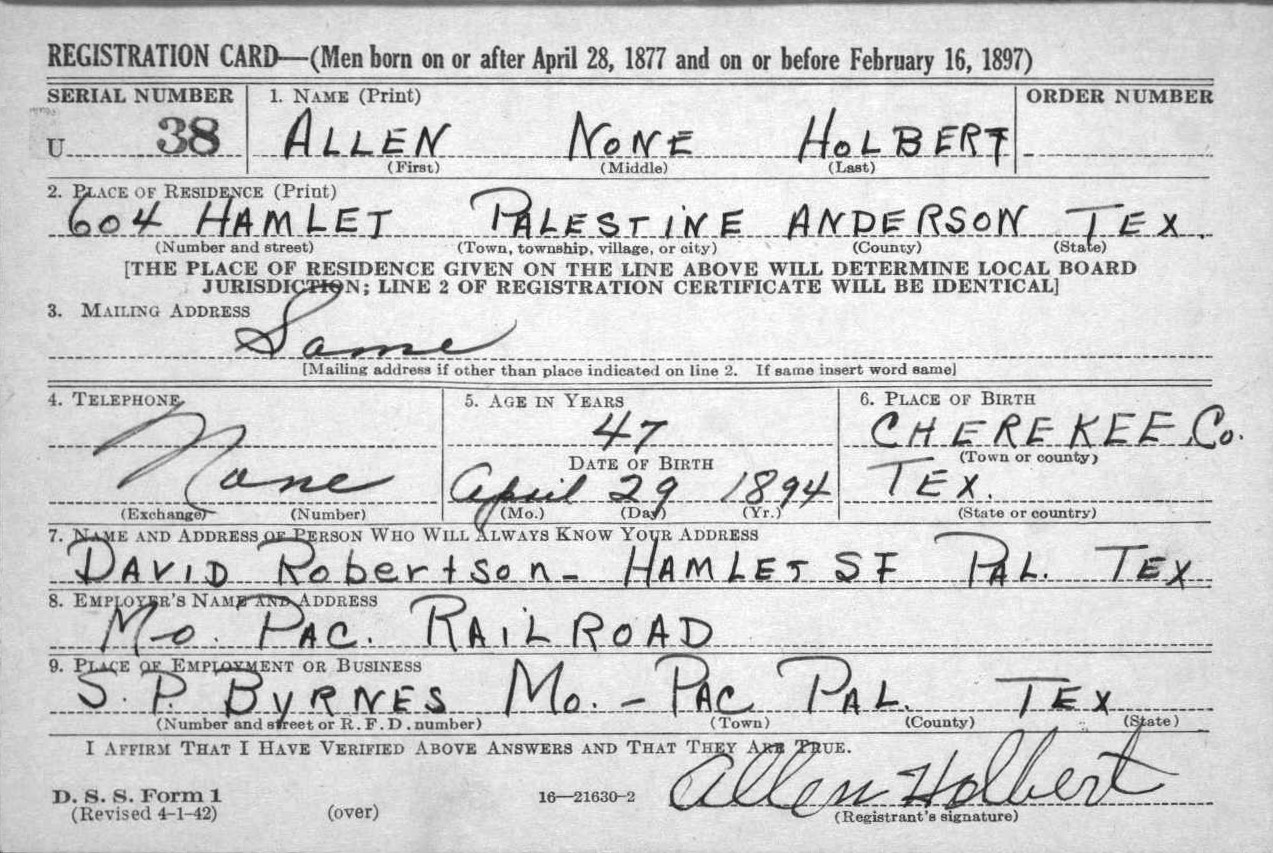 REGISTRATION CARD—(Men born on or after April 28, 1877 and on or before February 16, 1897)
SERIAL NUMBER 1. NAME (Print) ORDER NUMBER
U 38 ALLEN NONE HOLBERT
(First) (Middle) (Last)
2. PLACE OF RESIDENCE (Print)
604 HAMLET PALESTINE ANDERSON TEX.
(Number and street) (Town, township, village, or city) (County) (State)
[THE PLACE OF RESIDENCE GIVEN ON THE LINE ABOVE WILL DETERMINE LOCAL BOARD
JURISDICTION; LINE 2 OF REGISTRATION CERTIFICATE WILL BE IDENTICAL]
3. MAILING ADDRESS
Same
[Mailing address if other than place indicated on line 2. If same insert word same]
4. TELEPHONE 5. AGE IN YEARS 6. PLACE OF BIRTH
47 CHEREKEE Co.
DATE OF BIRTH (Town or county)
None April 29 1894 TEX.
(Exchange) (Number) (Mo.) (Day) (Yr.) (State or country)
7. NAME AND ADDRESS OF PERSON WHO WILL ALWAYS KNOW YOUR ADDRESS
DAVID Robertson- HAMLET ST PAL. TEX
8. EMPLOYER'S NAME AND ADDRESS
Mo. PAC. RAILROAD
9. PLACE OF EMPLOYMENT OR BUSINESS
S. P. BYRNES Mo. - PAC PAL. TEX
(Number and street or R. F. D. number) (Town) (County) (State)
I AFFIRM THAT I HAVE VERIFIED ABOVE ANSWERS AND THAT THEY ARE TRUE.
Allen Holbert
D. S. S. Form 1 16—21630-2
(Revised 4-1-42) (over) (Registrant's signature)